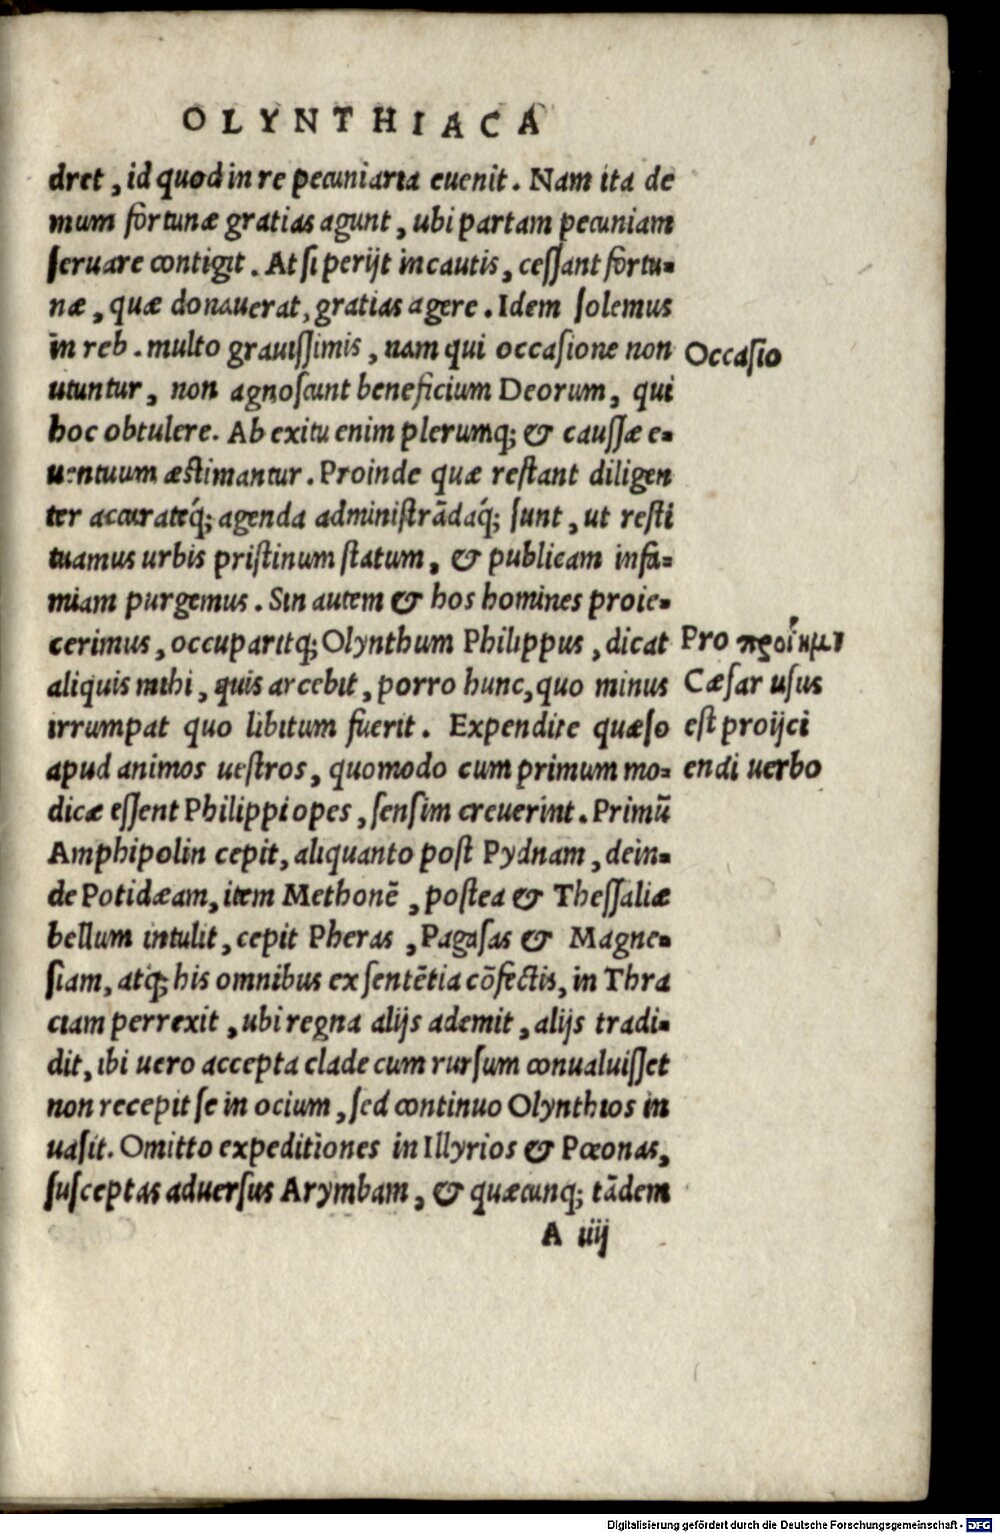 OLYNTHIACA
dret, id quod in re pecuniaria euenit. Nam ita de
mum fortunæ gratias agunt, ubi partam pecuniam
seruare contigit. At si perijt incautis, cessant fortu-
næ, quæ donauerat, gratias agere. Idem solemus
in reb. multo grauissimis, nam qui occasione non
Occasio
utuntur, non agnoscunt beneficium Deorum, qui
hoc obtulere. Ab exitu enim plerumq; & caussæ e-
uentuum æstimantur. Proinde quæ restant diligen
ter accurateq́; agenda administrãdaq́; sunt, ut resti
tuamus urbis pristinum statum, & publicam infa-
miam purgemus. Sin autem & hos homines proie-
cerimus, occuparitq; Olynthum Philippus, dicat
Pro προΐημι
aliquis mihi, quis arcebit, porro hunc, quo minus
Cæsar usus
irrumpat quo libitum fuerit. Expendite quæso
est proijci
apud animos uestros, quomodo cum primum mo-
endi uerbo
dicæ essent Philippi opes, sensim creuerint. Primũ
Amphipolin cepit, aliquanto post Pydnam, dein-
de Potidæam, item Methonẽ, postea & Thessaliæ
bellum intulit, cepit Pheras, Pagasas & Magne-
siam, atq; his omnibus ex sentẽtia cõfectis, in Thra
ciam perrexit, ubi regna alijs ademit, alijs tradi-
dit, ibi uero accepta clade cum rursum conualuisset
non recepit se in ocium, sed continuo Olynthios in
uasit. Omitto expeditiones in Illyrios & Pœonas,
susceptas aduersus Arymbam, & quæcunq; tãdem
A iiij
Digitalisierung gefördert durch die Deutsche Forschungsgemeinschaft - DFG